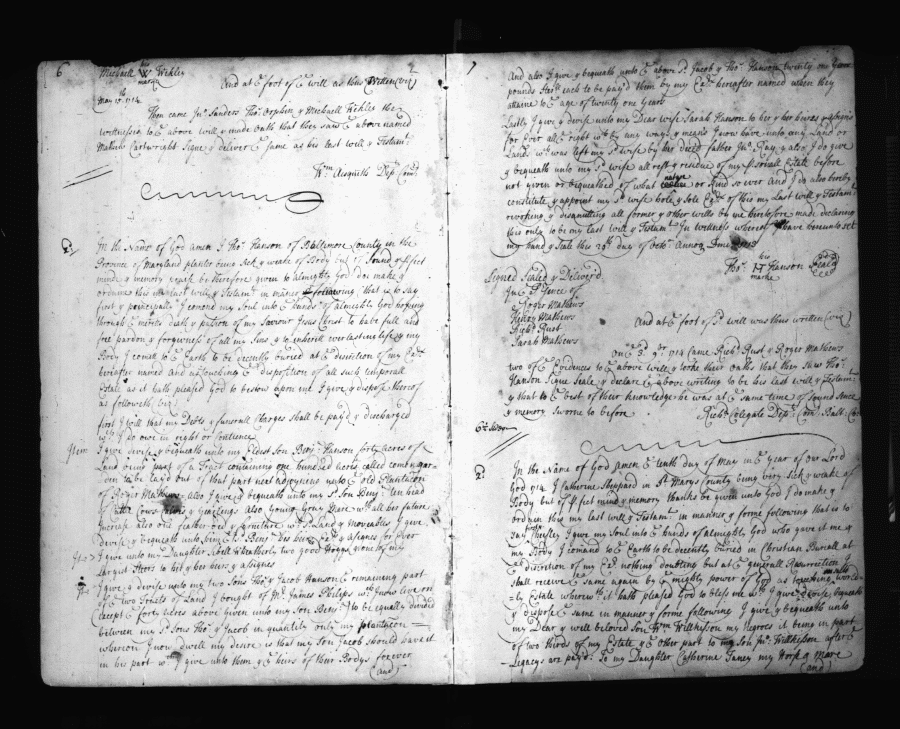 6
Michaell W Wekley
his
marque
2
And at ye foot of ye will as thus Written (viz)
May 10th 1714
Then came Jno. Sanders Tho. Orphin & Michaell Wekley the
wittnesses to ye above will & made Oath that they saw ye above named
Mathew Cartwright Signe & deliver ye same as his last will & Testamt.
Wm. Aisquith Dep. Com.
In the Name of God amen I Tho. Hanson of Baltimore County in the
Province of Maryland planter being Sick & weake of Body but of Sound & pfect
mind & memory praise be therefore given to almighty God do make &
ordaine this my last will & Testamt. in manner following that is to say
first & principally I comend my Soul into ye hands of almighty God hoping
through ye merits death & passion of my Saviour Jesus Christ to have full and
free pardon & forgivness of all my Sins & to inherit everlasting life & my
Body I comit to ye Earth to be decently buried at ye discretion of my Exr.
hereafter named and as touching ye disposition of all such temporall
Estate as it hath pleased God to bestow upon me I give & dispose thereof
as followeth (viz)
first I will that my Debts & funerall Charges shall be payd & discharged
wch. I do owe in right or Contience
Item I give devise & bequeath unto my Eldest Son Benj. Hanson forty acres of
Land being part of a Tract containing one hundred acres called
to be layd out of that part next adjoyneing unto ye old Plantation
of Roger Mathews also I give & bequeath unto my Sd. Son Benj. ten head
of Cattle Cows & yearlings also Young Gray Mare wth. all her future
Increase also one feather bed & furniture wch. Sd. Land & moveables I give
devise & bequeath unto him ye Sd. Benj. his heirs & assignes for Ever
Item I give unto my Daughter Sibell Weatherly two good Hoggs & one of my
largest Steers to her & her heirs & assignes
Item I give & devise unto my two Sons Tho. & Jacob Hanson ye remaining part
of ye two Tracts of Land I bought of Mr. James Phelips wch. I now live on
(Except ye forty acres above given unto my Son Benj.) to be equally divided
between my Sd. Sons Tho. & Jacob in quantity only my plantacon
whereon I now dwell my desire is that my Son Jacob should have it
in his part wch. I give unto them & ye heirs of their Bodys forever
(and)
7
And also I give & bequeath unto ye above Sd. Jacob & Tho. Hanson twenty one
pounds Sterl. each to be payd them by my Exr. hereafter named when they
attaine to ye age of twenty one Years
Lastly I give & devise unto my Dear wife Sarah Hanson to her & her heires & assignes
for Ever all ye right wch. by any ways & means I now have unto any Land or
Lands wch. was left my Sd. wife by her decd. father Jno. Ray & also I do give
& bequeath unto my Sd. wife all ye rest & residue of my psonall Estate before
not given or bequeathed of what nature or kind so ever And I do also hereby
constitute & appoint my Sd. wife hole & Sole Exr. of this my Last will & Testamt.
revoking & disanulling all former & other wills by me heretofore made declaring
this only to be my last will & Testamt. In wittness whereof I have hereunto set
my hand & Seale this 29th day of Annoq Dmi 1713
Tho. H Hanson Seald
his
marke
Signed Sealed & Deliverd
In ye Psence of
Roger Mathews
Henry Mathews
Richd. Rust
Sarah Mathews
And at ye foot of Sd. will was thus written (viz)
On ye 3d. 9r. 1714 Came Richd. Rust & Roger Mathews
two of ye Evidences to ye above will & tooke their Oaths that they saw Tho.
Hanson Signe Seale & declare ye above writing to be his last will & Testamt.
& that to ye best of their knowledge he was at ye same time of sound Sence
& memory Sworne to before
Richd. Colegate Depty. Com. Balt. Co.
In the Name of God Amen ye tenth day of May in ye Year of our Lord
God 1714 I Catherine Sheppard in St. Marys County being very Sick & weake of
Body but of pfect mind & memory thanks be given unto God I do make &
ordain this my last will & Testamt. in manner & forme following that is to
say Chiefley I give my Soul into ye hands of almighty God who gave it me &
my Body I comand to ye Earth to be decently buried in Christian Buriall at
ye discretion of my Exr. nothing doubting but at ye generall Resurrection
shall receive ye same again by ye mighty power of God as touching worldly
Estate wherewth. it hath pleased God to bless me wth. I give devise bequeath
& dispose ye same in manner & forme following I give & bequeath unto
my Dear & well beloved Son Wm. Wilkisson my Negroes it being in part
of two thirds of my Estate & ye other part to my Son Jno. Wilkisson after ye
Legacys are payd. To my Daughter Catherine Taney my Horse & Mare
(and)